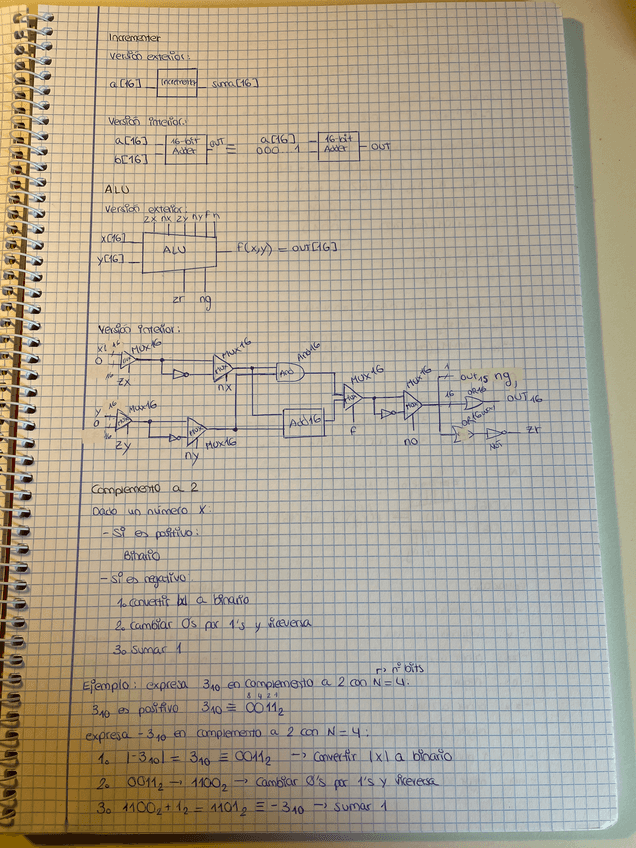 Incrementer
Versión exterior:
a[16] Incrementer suma[16]
Versión interior:
a[16] 16-bit OUT ≡ a[16] 16-bit
b[16] Adder 000...1 Adder OUT
ALU
Versión exterior:
zx nx zy ny f n
x[16]
ALU f(x,y) = OUT[16]
y[16]
zr ng
Versión interior:
x 16 Mux16 Mux16 And16
0 Mux Mux And
16 zx nx Mux16 Mux16 1 out15 ng,
y 16 Mux16 Mux Mux 16 OR16 OUT16
0 Mux Mux Add16
16 zy ny Mux16 f no NOT zr
Complemento a 2
Dado un número X:
- Si es positivo:
Binario
- Si es negativo
1. convertir |x| a binario
2. cambiar 0's por 1's y viceversa
3. sumar 1
nº bits
Ejemplo: expresa 3₁₀ en complemento a 2 con N = 4.
8 4 2 1
3₁₀ es positivo 3₁₀ ≡ 0011₂
expresa -3₁₀ en complemento a 2 con N = 4:
1. |-3₁₀| = 3₁₀ ≡ 0011₂ → convertir |x| a binario
2. 0011₂ → 1100₂ → cambiar 0's por 1's y viceversa
3. 1100₂ + 1₂ = 1101₂ ≡ -3₁₀ → sumar 1